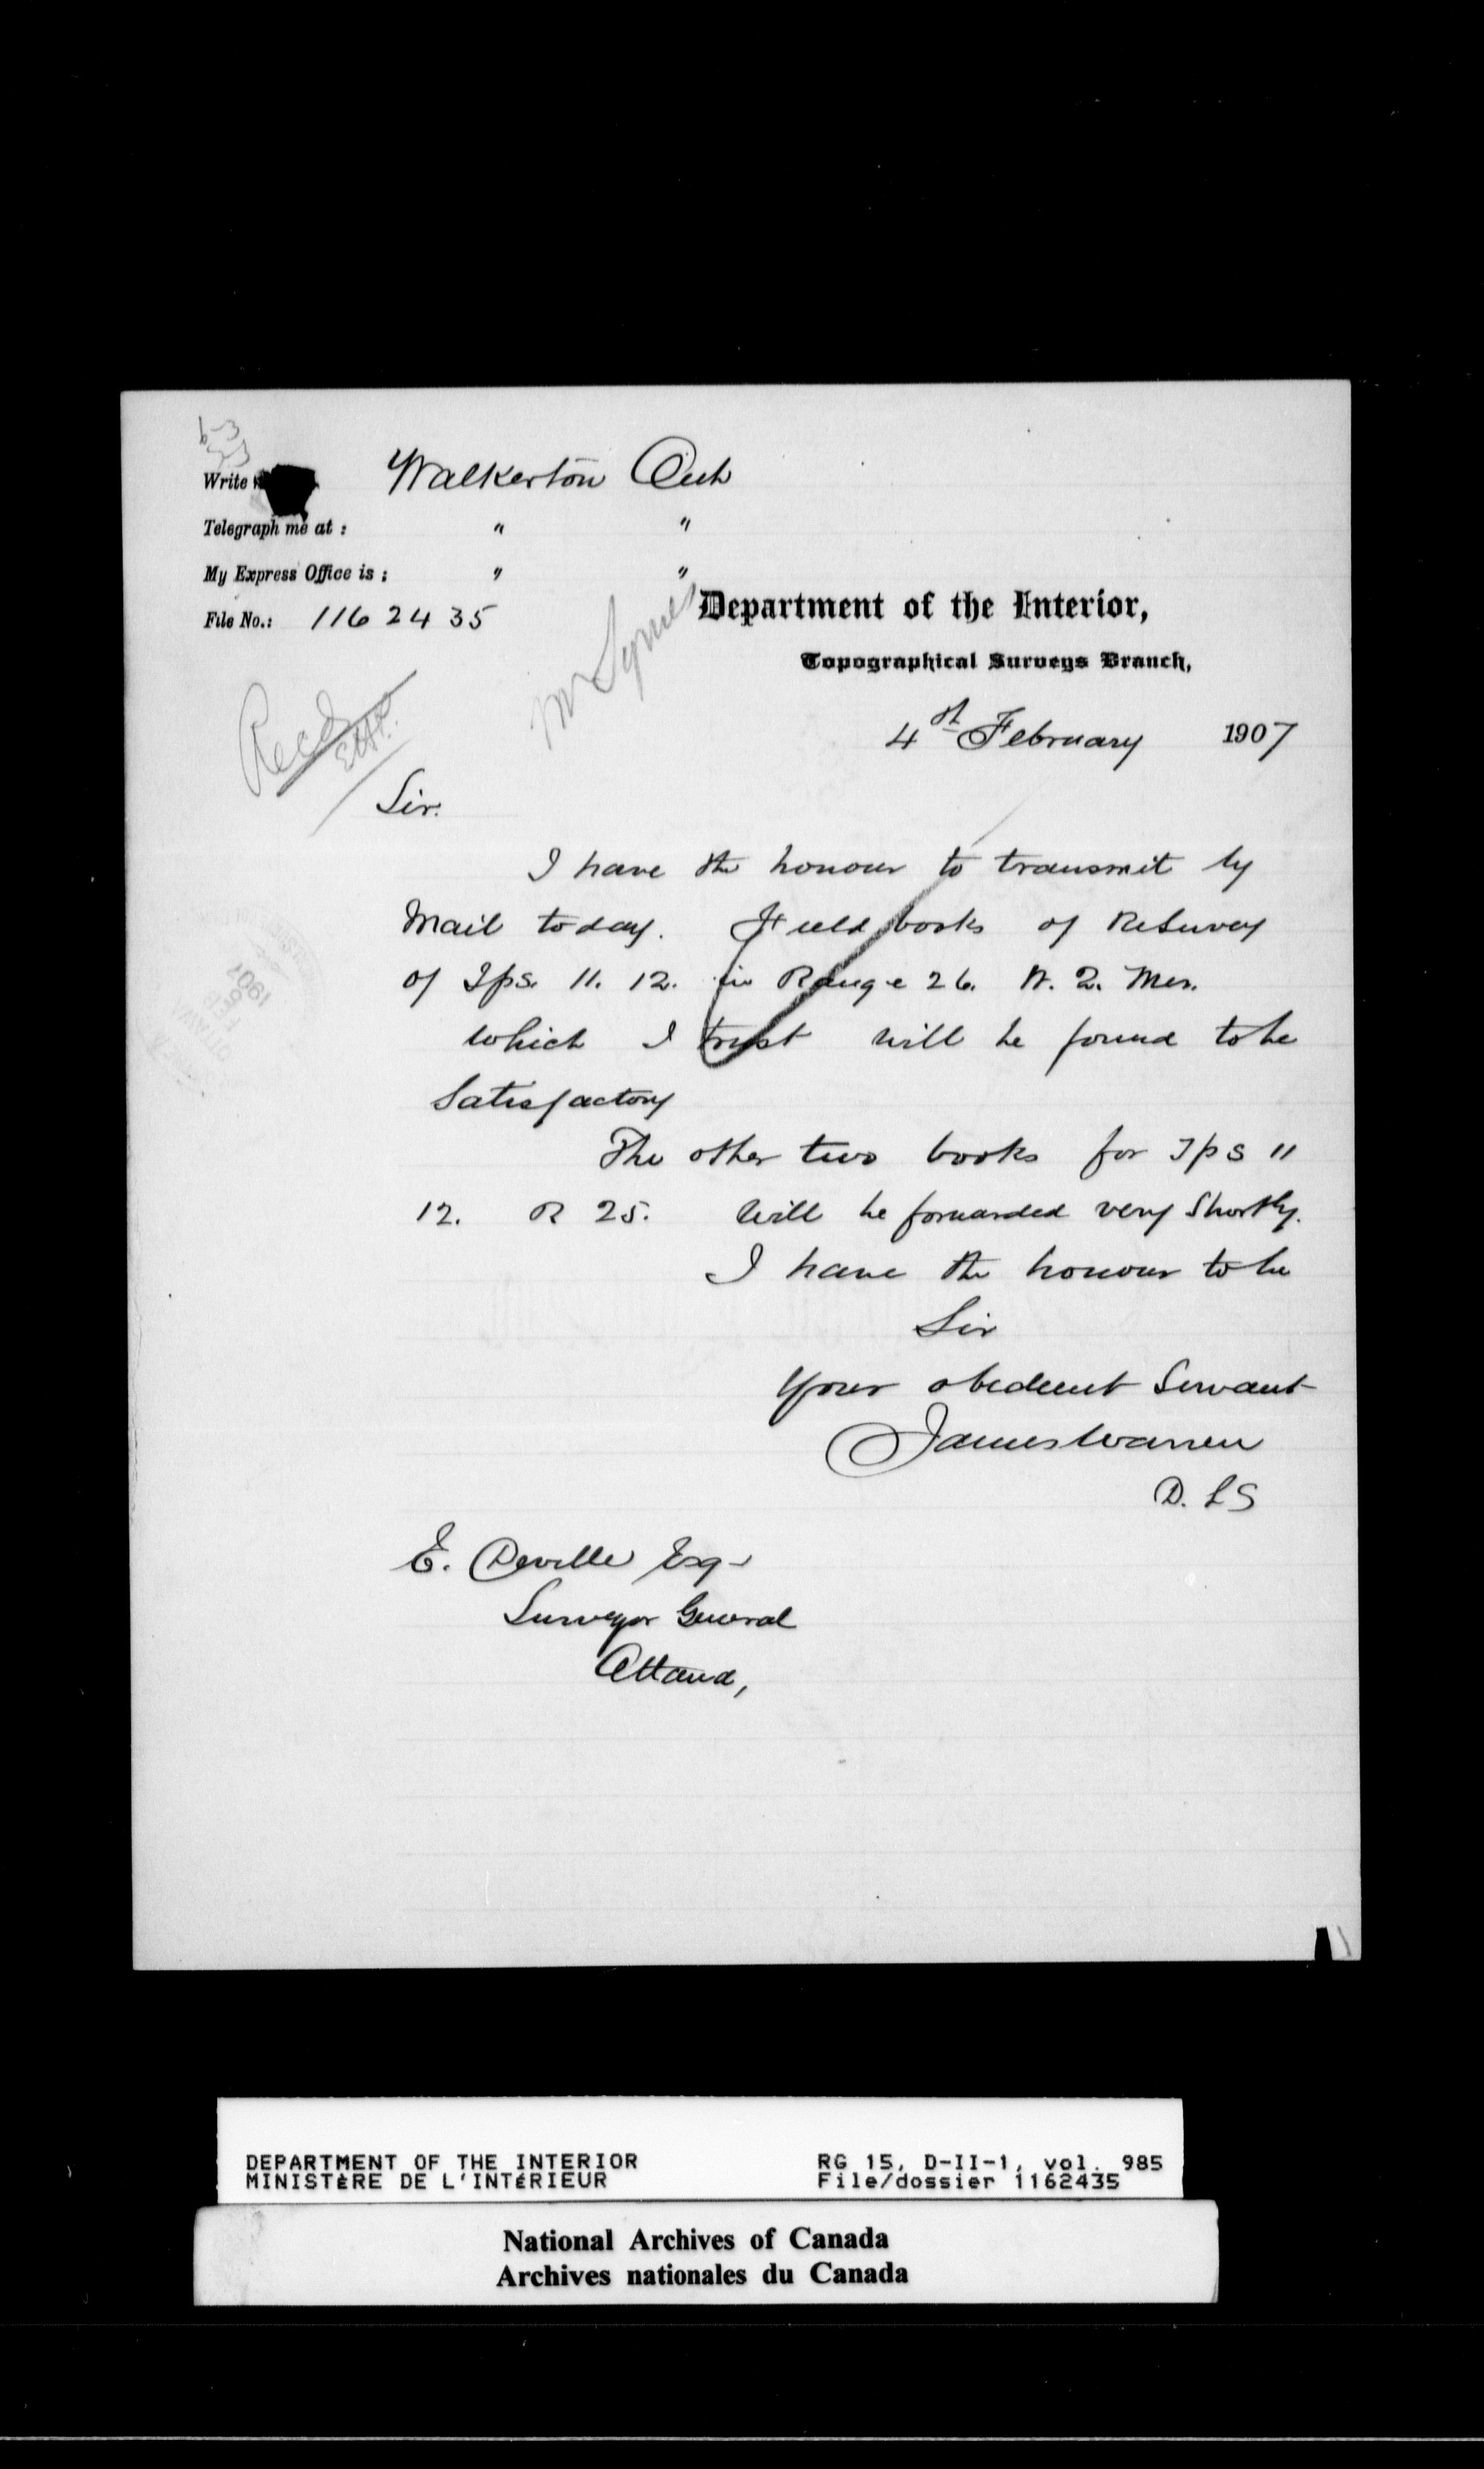 Write
Walkerton Ont
Telegraph me at : " "
My Express Office is : " "
File No.: 1162435
Department of the Interior,
Topographical Surveys Branch,
4th February 1907
Recd
Sir.
I have the honour to transmit by
Mail today. Field books of ReSurvey
of Tps. 11. 12. in Range 26. W. 2. Mer.
which I trust will be found to be
Satisfactory
The other two books for Tps 11
12. R 25. will be forwarded very Shortly.
I have the honour to be
Sir
Your obedient Servant
James Warren
D. L S
E. Deville Esq
Surveyor General
Ottawa,
DEPARTMENT OF THE INTERIOR
MINISTÈRE DE L'INTÉRIEUR
RG 15, D-II-1, vol. 985
File/dossier 1162435
National Archives of Canada
Archives nationales du Canada